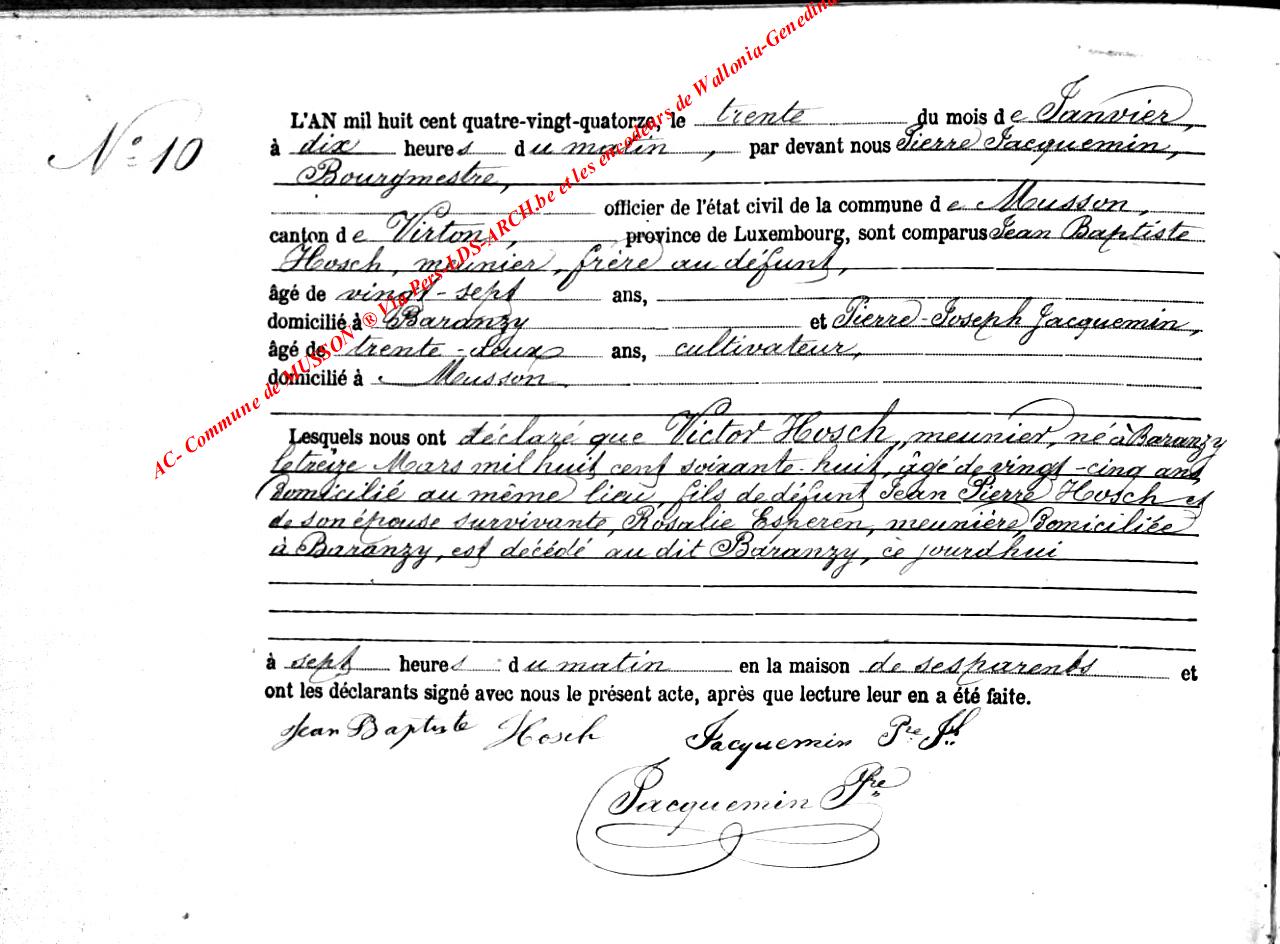 N° 10
L'AN mil huit cent quatre-vingt-quatorze, le trente du mois de Janvier,
à dix heures du matin, par devant nous Pierre Jacquemin,
Bourgmestre,
officier de l'état civil de la commune de Musson,
canton de Virton, province de Luxembourg, sont comparus Jean Baptiste
Hosch, meunier, frère au défunt,
âgé de vingt-sept ans,
domicilié à Baranzy et Pierre-Joseph Jacquemin,
âgé de trente-deux ans, cultivateur,
domicilié à Musson
Lesquels nous ont déclaré que Victor Hosch, meunier, né à Baranzy
le treize Mars mil huit cent soixante-huit, âgé de vingt-cinq ans
Domicilié au même lieu, fils de défunt Jean Pierre Hosch et
de son épouse survivante, Rosalie Esperen, meunière, Domiciliée
à Baranzy, est décédé au dit Baranzy, ce jourdhui
à sept heures du matin en la maison de ses parents et
ont les déclarants signé avec nous le présent acte, après que lecture leur en a été faite.
Jean Baptiste Hosch Jacquemin Pre Jh
Jacquemin Pre
AC- Commune de MUSSON ® Via Pers-LDS-ARCH.be et les encodeurs de Wallonia-Genedina